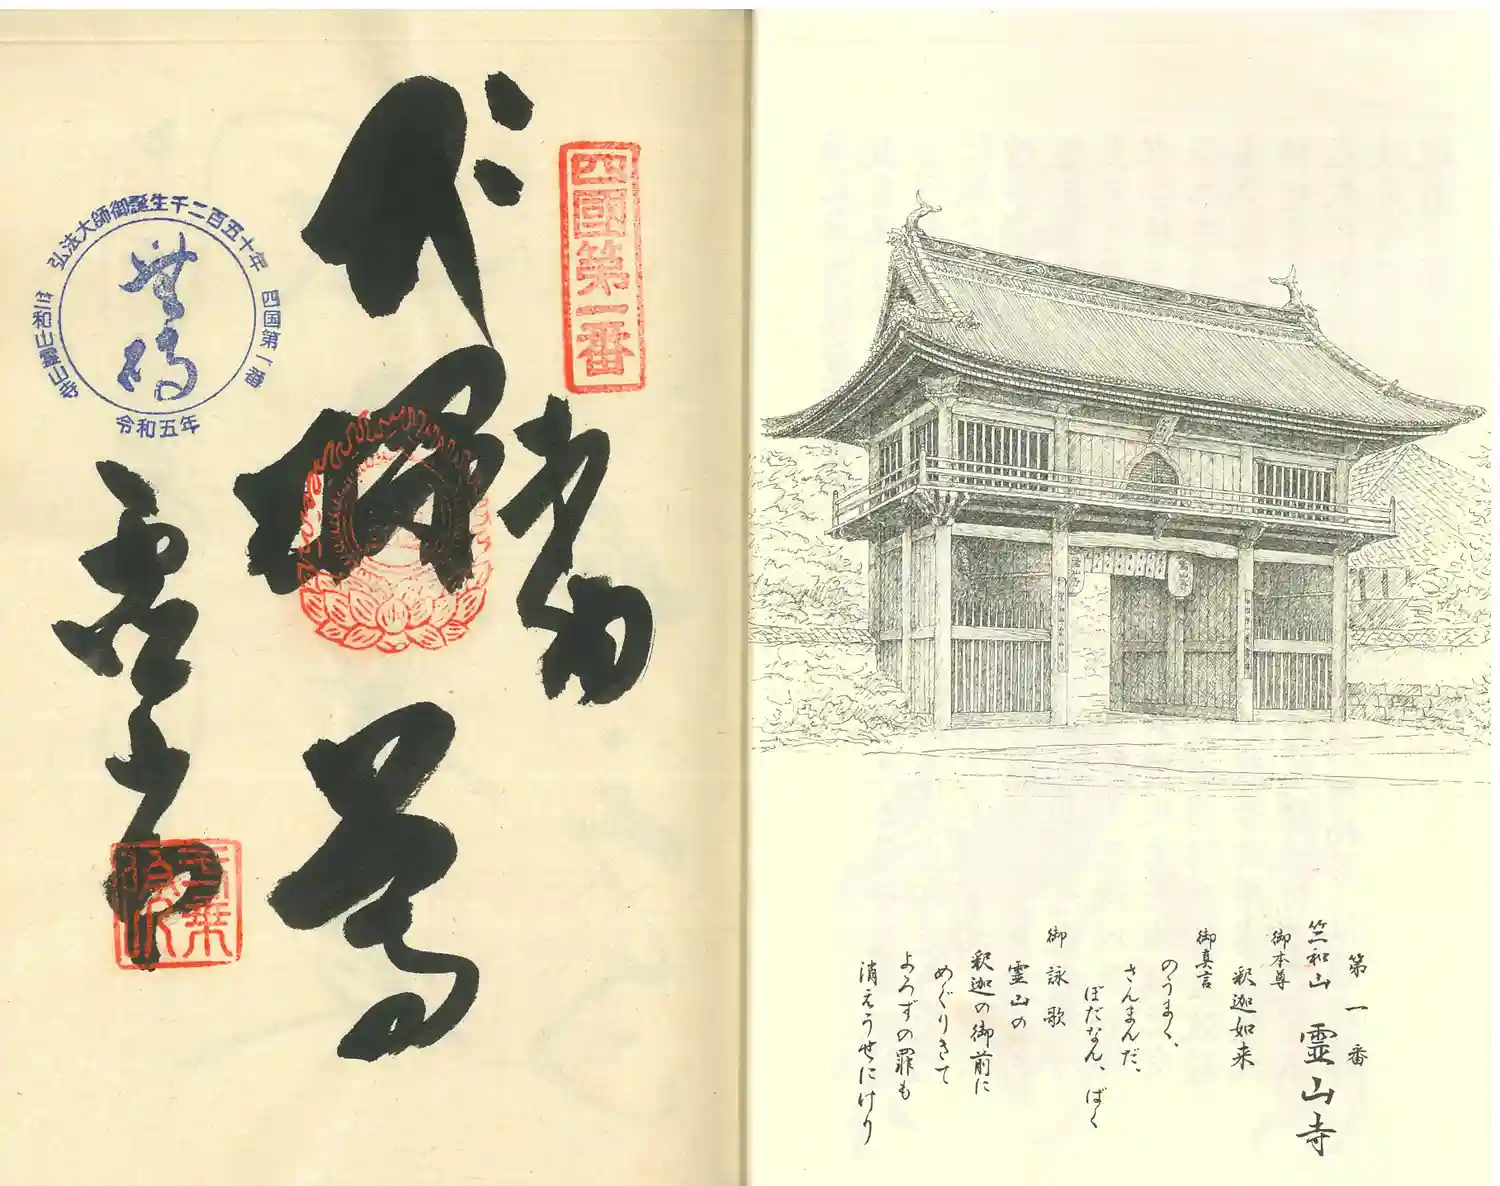 第一番
竺和山 霊山寺
御本尊
釈迦如来
御真言
のうまく、
さんまんだ、
ぼだなん、ばく
御詠歌
霊山の
釈迦の御前に
めぐりきて
よろずの罪も
消えうせにけり
霊山寺
四國第一番
奉納
弘法大師御誕生千二百五十年
四国第一番
竺和山霊山寺
令和五年